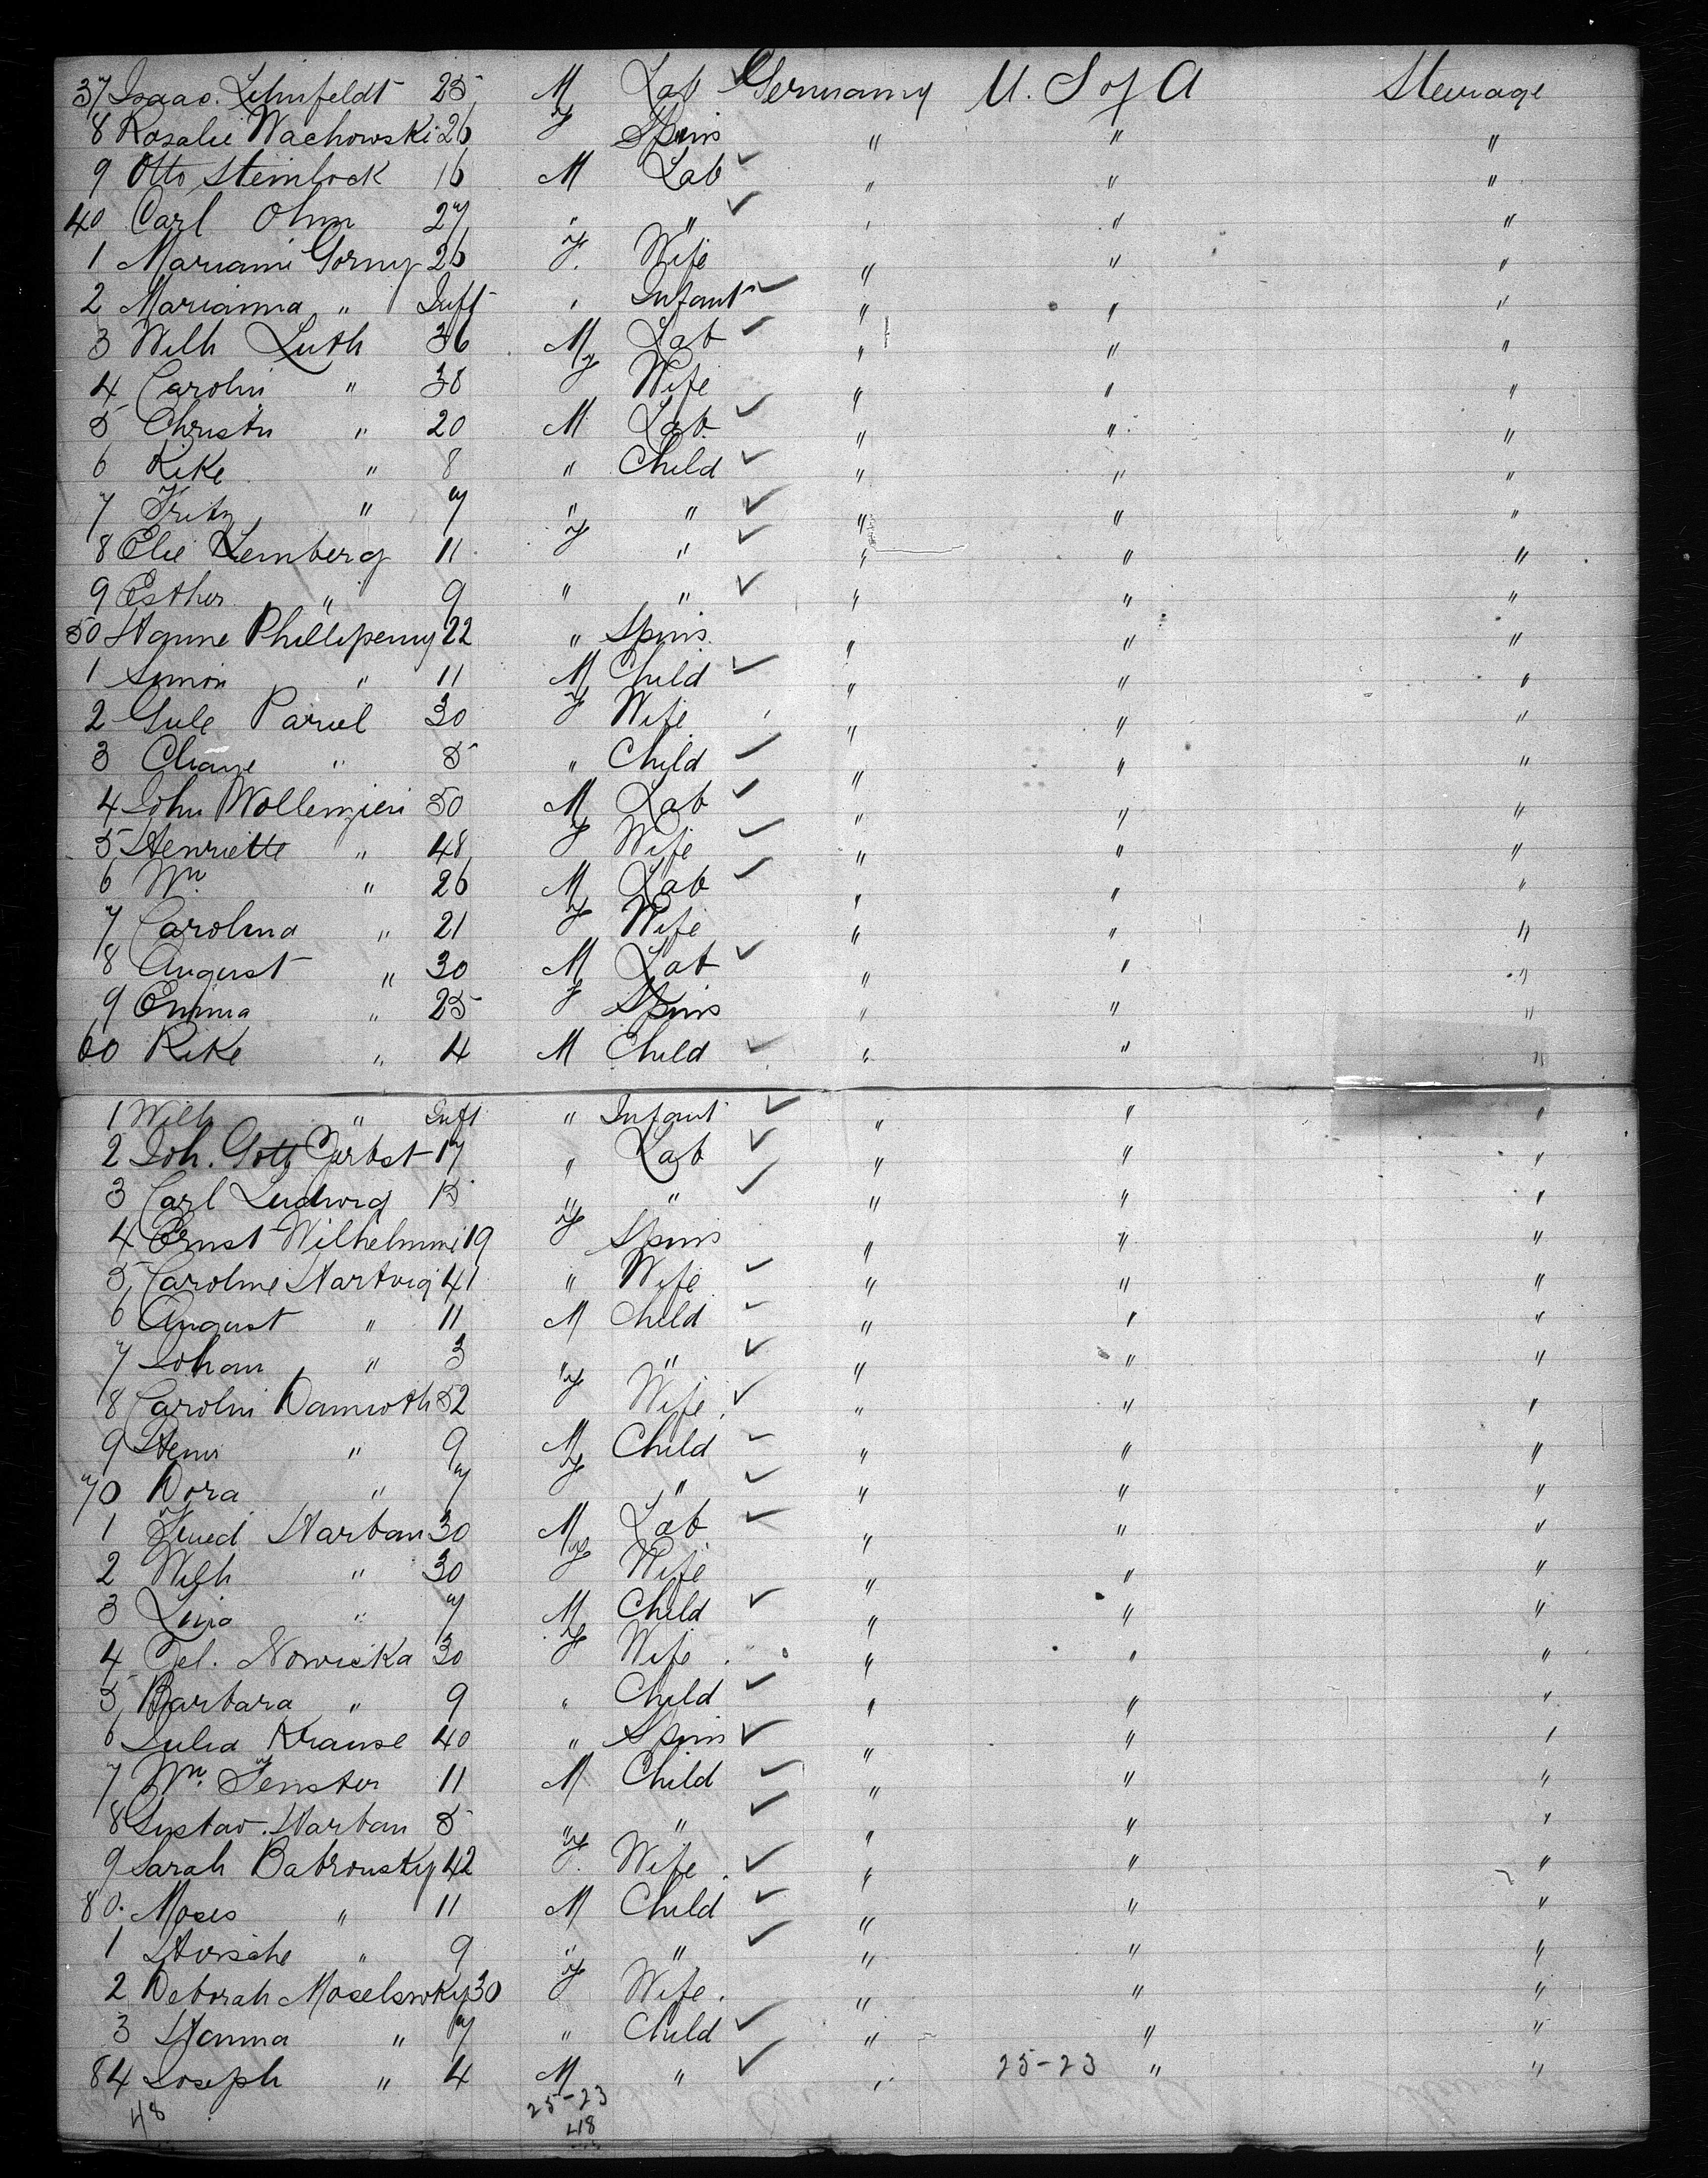 37 Isaac. Lihnfeldt 25 M Lab Germany U. S of A Steerage
8 Rosalie Wachowski 26 f Spins " " "
9 Otto Steinbock 16 M Lab " " "
40 Carl Ohm 27 " " " " "
1 Mariami Gorny 26 f. Wife " " "
2 Marianna " Inft " Infant " " "
3 Wilh Luth 36 M Lab " " "
4 Carolin " 38 f Wife " " "
5 Christn " 20 M Lab " " "
6 Rike " 8 " Child " " "
7 Fritz " 7 " " " " "
8 Elie Lemberg 11 f " " " "
9 Esther " 9 " " " " "
50 Hanne Phillipenny 22 " Spins. " " "
1 Simon " 11 M Child " " "
2 Gule Pariel 30 f Wife " " "
3 Chaye " 5 " Child " " "
4 John Wollenzien 50 M Lab " " "
5 Henriette " 48 f Wife " " "
6 Wm " 26 M Lab " " "
7 Carolina " 21 f Wife " " "
8 August " 30 M Lab " " "
9 Emma " 25 f Spins " " "
60 Rike " 4 M Child " " "
1 Wilh " Inft " Infant " " "
2 Joh. Gottf Gerbst 17 " Lab " " "
3 Carl Ludwig 15 " " " " "
4 Ernst Wilhelmine 19 f Spins " " "
5 Caroline Hartvig 41 " Wife " " "
6 August " 11 M Child " " "
7 Johan " 3 " " " " "
8 Carolin Damroth 52 f Wife " " "
9 Henri " 9 M Child " " "
70 Dora " 7 f " " " "
1 Fried Harban 30 M Lab " " "
2 Wilh " 30 f Wife " " "
3 Lina " 7 M Child " " "
4 Cel. Nowicka 30 f Wife " " "
5 Barbara " 9 " Child " " "
6 Julia Krause 40 " Spins " " "
7 Wm. Fenster 11 M Child " " "
8 Gustav. Harban 5 " " " " "
9 Sarah Babrousky 42 f. Wife " " "
80. Moses " 11 M Child " " "
1 Hirsche " 9 " " " " "
2 Deborah Moselswky 30 f Wife. " " "
3 Hanna " 7 " Child " " "
84 Joseph " 4 M " " 25-23 " "
48 25-23
48